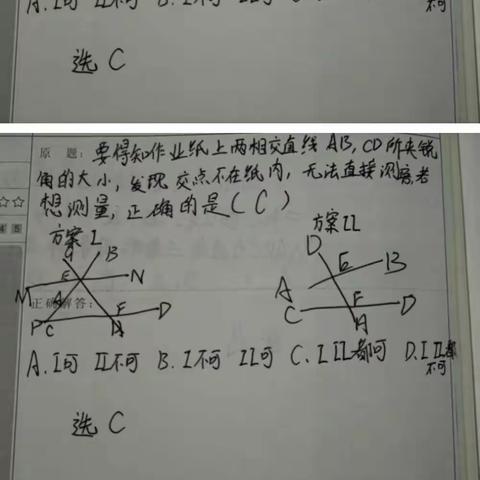 选 C
原 题: 要得知作业纸上两相交直线AB,CD所夹锐
角的大小,发现交点不在纸内,无法直接测
想测量,正确的是(C)
方案I
方案II
G B
E
M N
A
正确解答:
P C F D
H
D
E B
A
C F D
H
A.I可 II不可 B.I不可 II可 C.I II都可 D.I II都
不可
选 C
4 5